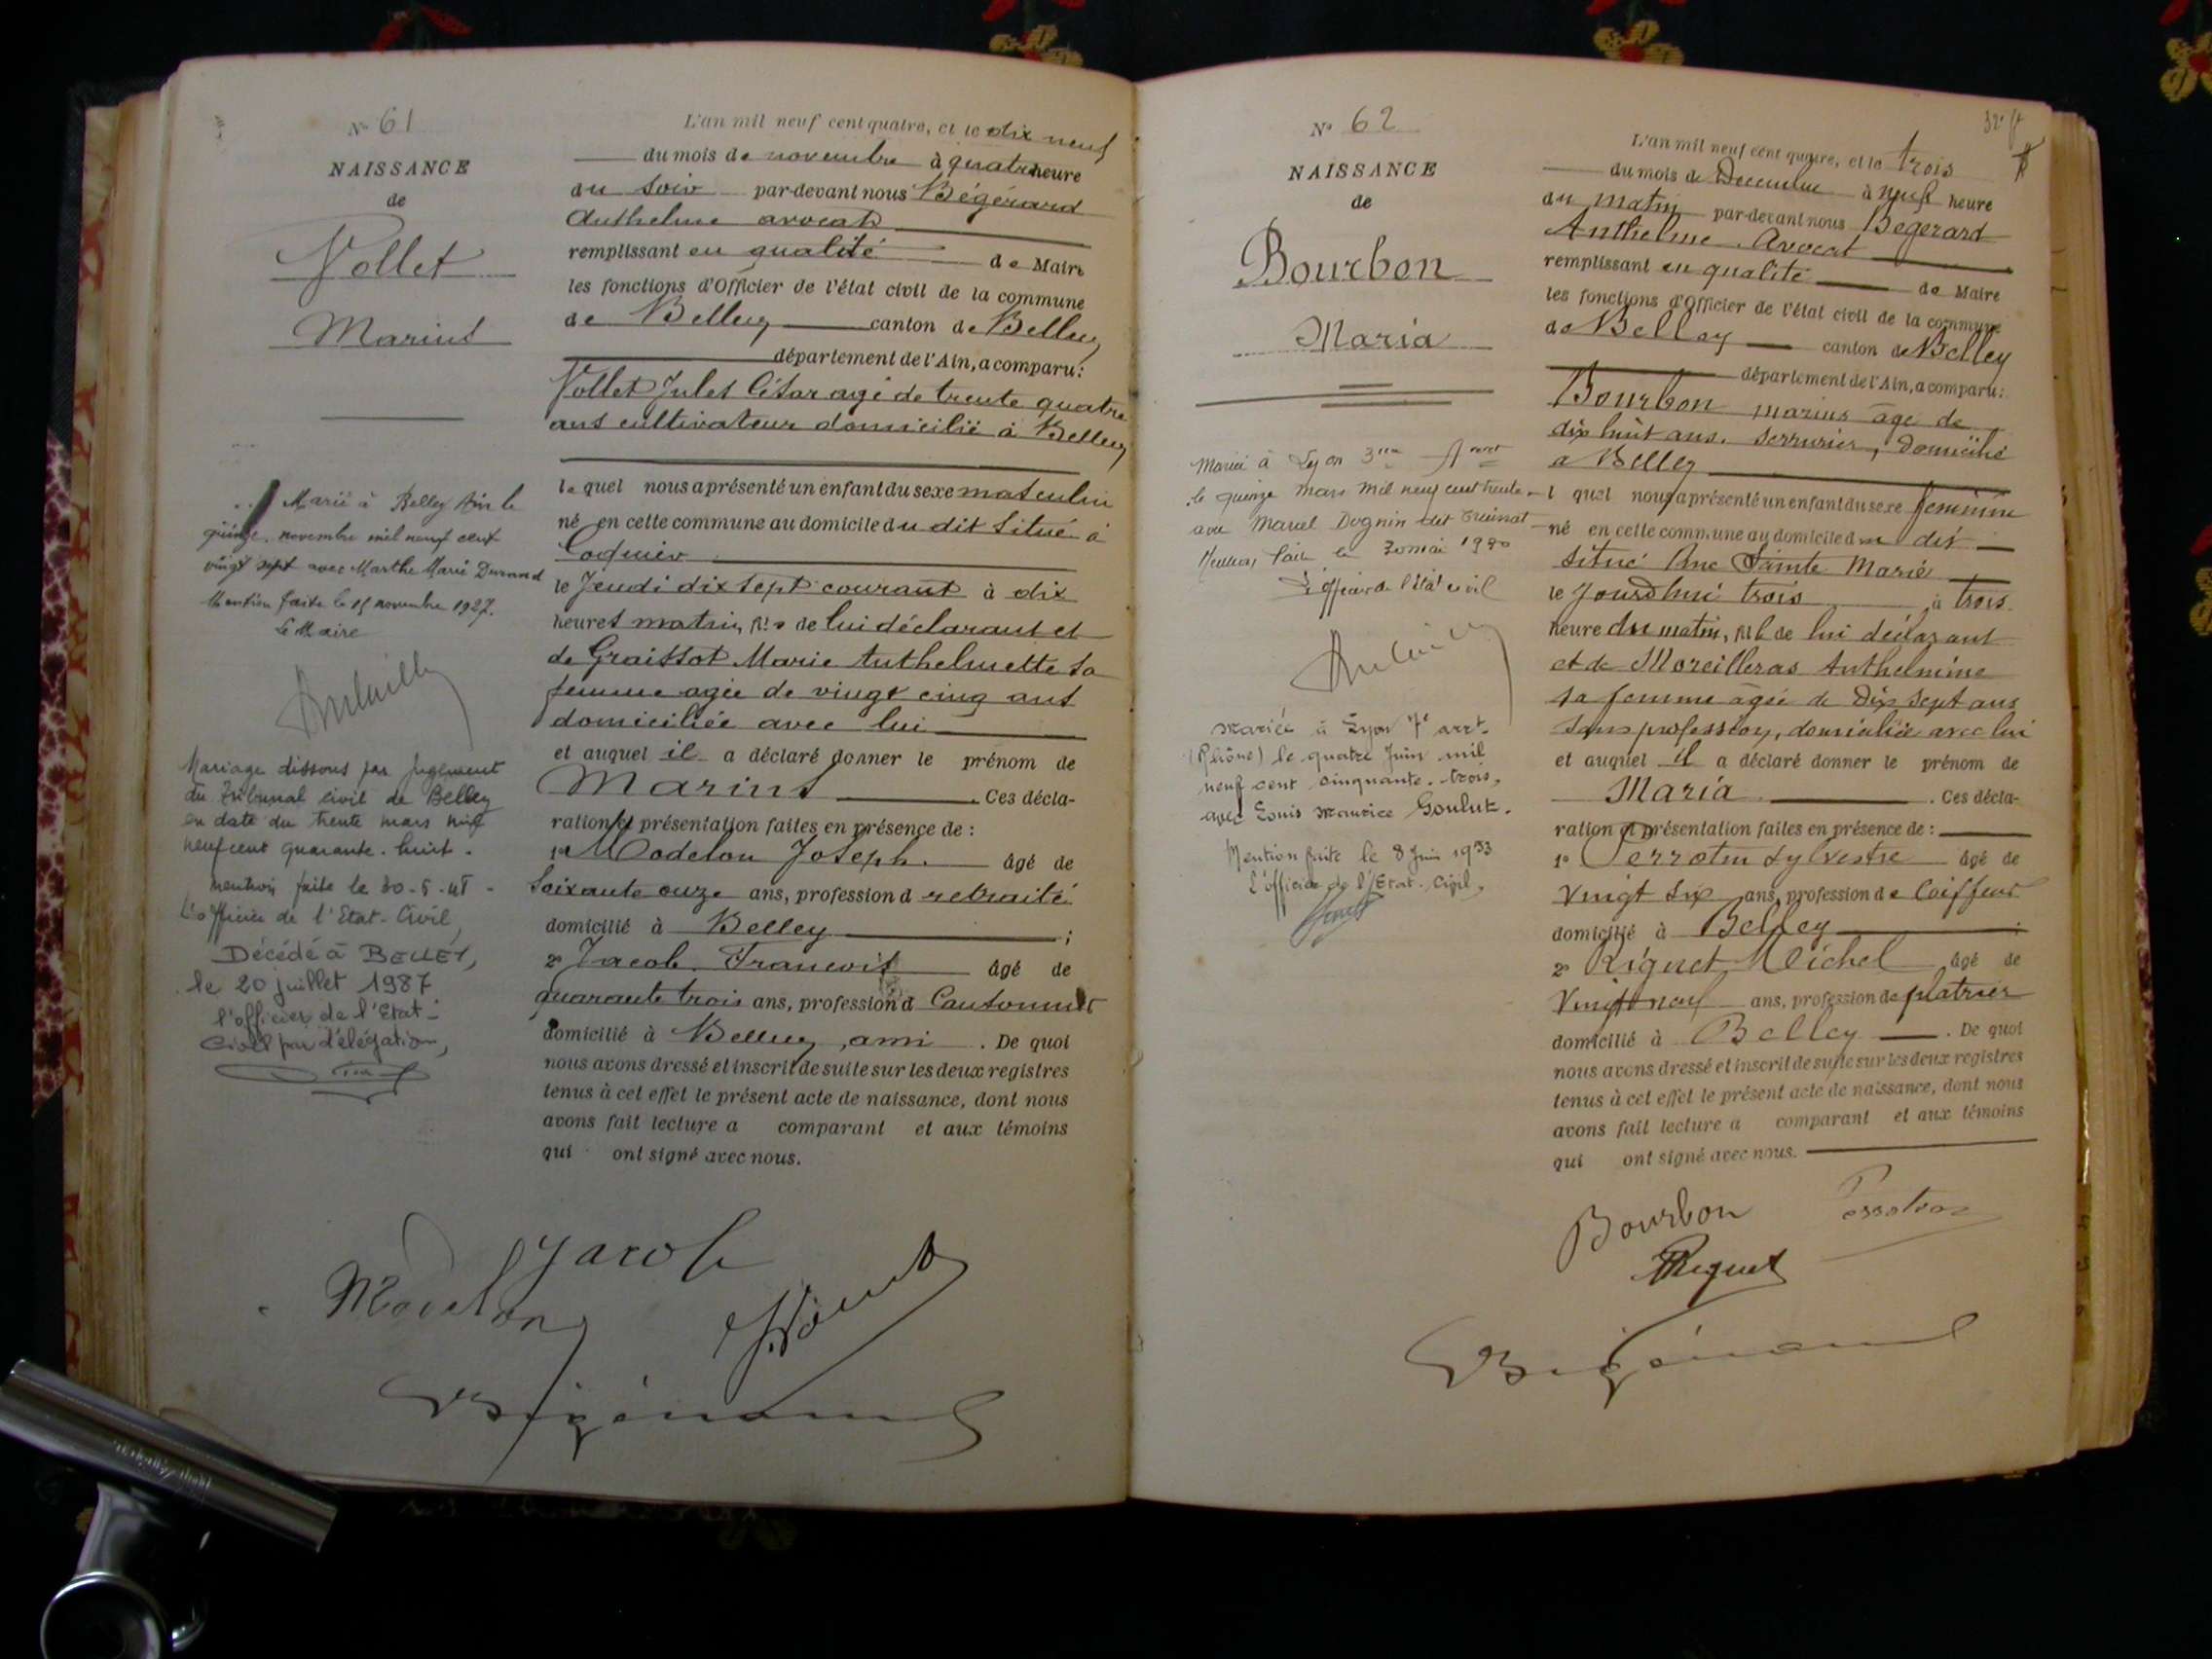 N° 61
NAISSANCE
de
Vollet
Marius
Marié à Belley Ain le
quinze novembre mil neuf cent
vingt sept avec Marthe Marie Durand
Mention faite le 15 novembre 1927.
Le Maire
Mariage dissous par jugement
du Tribunal civil de Belley
en date du trente mars mil
neuf cent quarante-huit.
mention faite le 30-5-48
L'officier de l'Etat-Civil,
Décédé à BELLEY,
le 20 juillet 1987
l'officier de l'Etat-
Civil par délégation,
L'an mil neuf cent quatre, et le dix neuf
du mois de novembre à quatre heure
du soir par-devant nous Bégérard
Anthelme avocat
remplissant en qualité de Maire
les fonctions d'Officier de l'état civil de la commune
de Belley canton de Belley
département de l'Ain, a comparu:
Vollet Jules César agé de trente quatre
ans cultivateur domicilié à Belley
le quel nous a présenté un enfant du sexe masculin
né en cette commune au domicile du dit situé à
le Jeudi dix sept courant à dix
heures matin, fils de lui déclarant et
de Graissot Marie Anthelmette sa
femme agée de vingt cinq ans
domiciliée avec lui
et auquel il a déclaré donner le prénom de
Marius. Ces décla-
ration et présentation faites en présence de :
1° Modelon Joseph. âgé de
soixante onze ans, profession d retraité
domicilié à Belley ;
2° Jacob François âgé de
quarante trois ans, profession d Cantonnier
domicilié à Belley, ami. De quoi
nous avons dressé et inscrit de suite sur les deux registres
tenus à cet effet le présent acte de naissance, dont nous
avons fait lecture a comparant et aux témoins
qui ont signé avec nous.
Jacob
Modelon
Bégérard
N° 62
NAISSANCE
de
Bourbon
Maria
Mariée à Lyon 3me Arret
le quinze mars mil neuf cent trente
avec Marcel Dognin dit
Mention faite le 30 mai 1930
L'officier de l'état civil
Mariée à Lyon 7e arrt.
(Rhône) le quatre Juin mil
neuf cent cinquante-trois,
avec Louis Maurice Goulut.
Mention faite le 8 Juin 1953
L'officier de l'Etat-Civil,
L'an mil neuf cent quatre, et le trois
du mois de Decembre à neuf heure
du matin par-devant nous Begerard
Anthelme. Avocat
remplissant en qualité de Maire
les fonctions d'Officier de l'état civil de la commune
de Belley canton de Belley
département de l'Ain, a comparu:
Bourbon marius âgé de
dix huit ans. Serrurier, domicilié
a Belley
l quel nous a présenté un enfant du sexe feminin
né en cette commune au domicile du dit
situé Rue Sainte Marie
le Jourdhui trois à trois
heure du matin, fille de lui déclarant
et de Moreilleras Anthelmine
sa femme âgée de Dix sept ans
sans profession, domiciliée avec lui
et auquel il a déclaré donner le prénom de
Maria. Ces décla-
ration et présentation faites en présence de :
1° Perrotin Sylvestre âgé de
Vingt six ans, profession de Coiffeur
domicilié à Belley ;
2° Riguet Michel âgé de
Vingt neuf ans, profession de platrier
domicilié à Belley. De quoi
nous avons dressé et inscrit de suite sur les deux registres
tenus à cet effet le présent acte de naissance, dont nous
avons fait lecture a comparant et aux témoins
qui ont signé avec nous.
Bourbon
Riguet
Bégérard